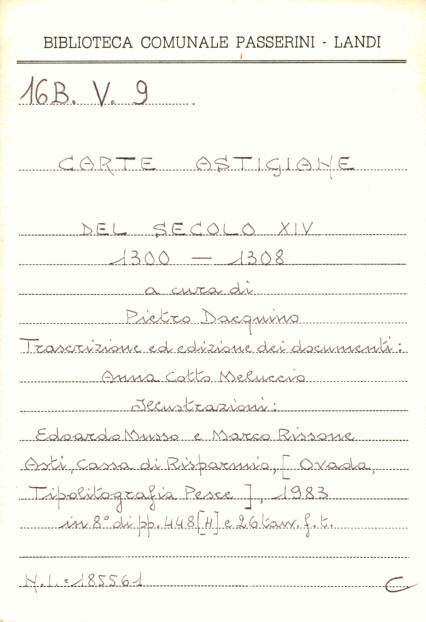 BIBLIOTECA COMUNALE PASSERINI - LANDI
16B. V. 9
CARTE ASTIGIANE
DEL SECOLO XIV
1300 — 1308
a cura di
Pietro Dacquino
Trascrizione ed edizione dei documenti:
Anna Cotto Meluccio
Illustrazioni:
Edoardo Musso e Marco Rissone
Asti, Cassa di Risparmio, [ Ovada,
Tipolitografia Pesce ], 1983
in 8° di pp. 448 [4] e 26 tavv. f. t.
N.I. = 185561 C